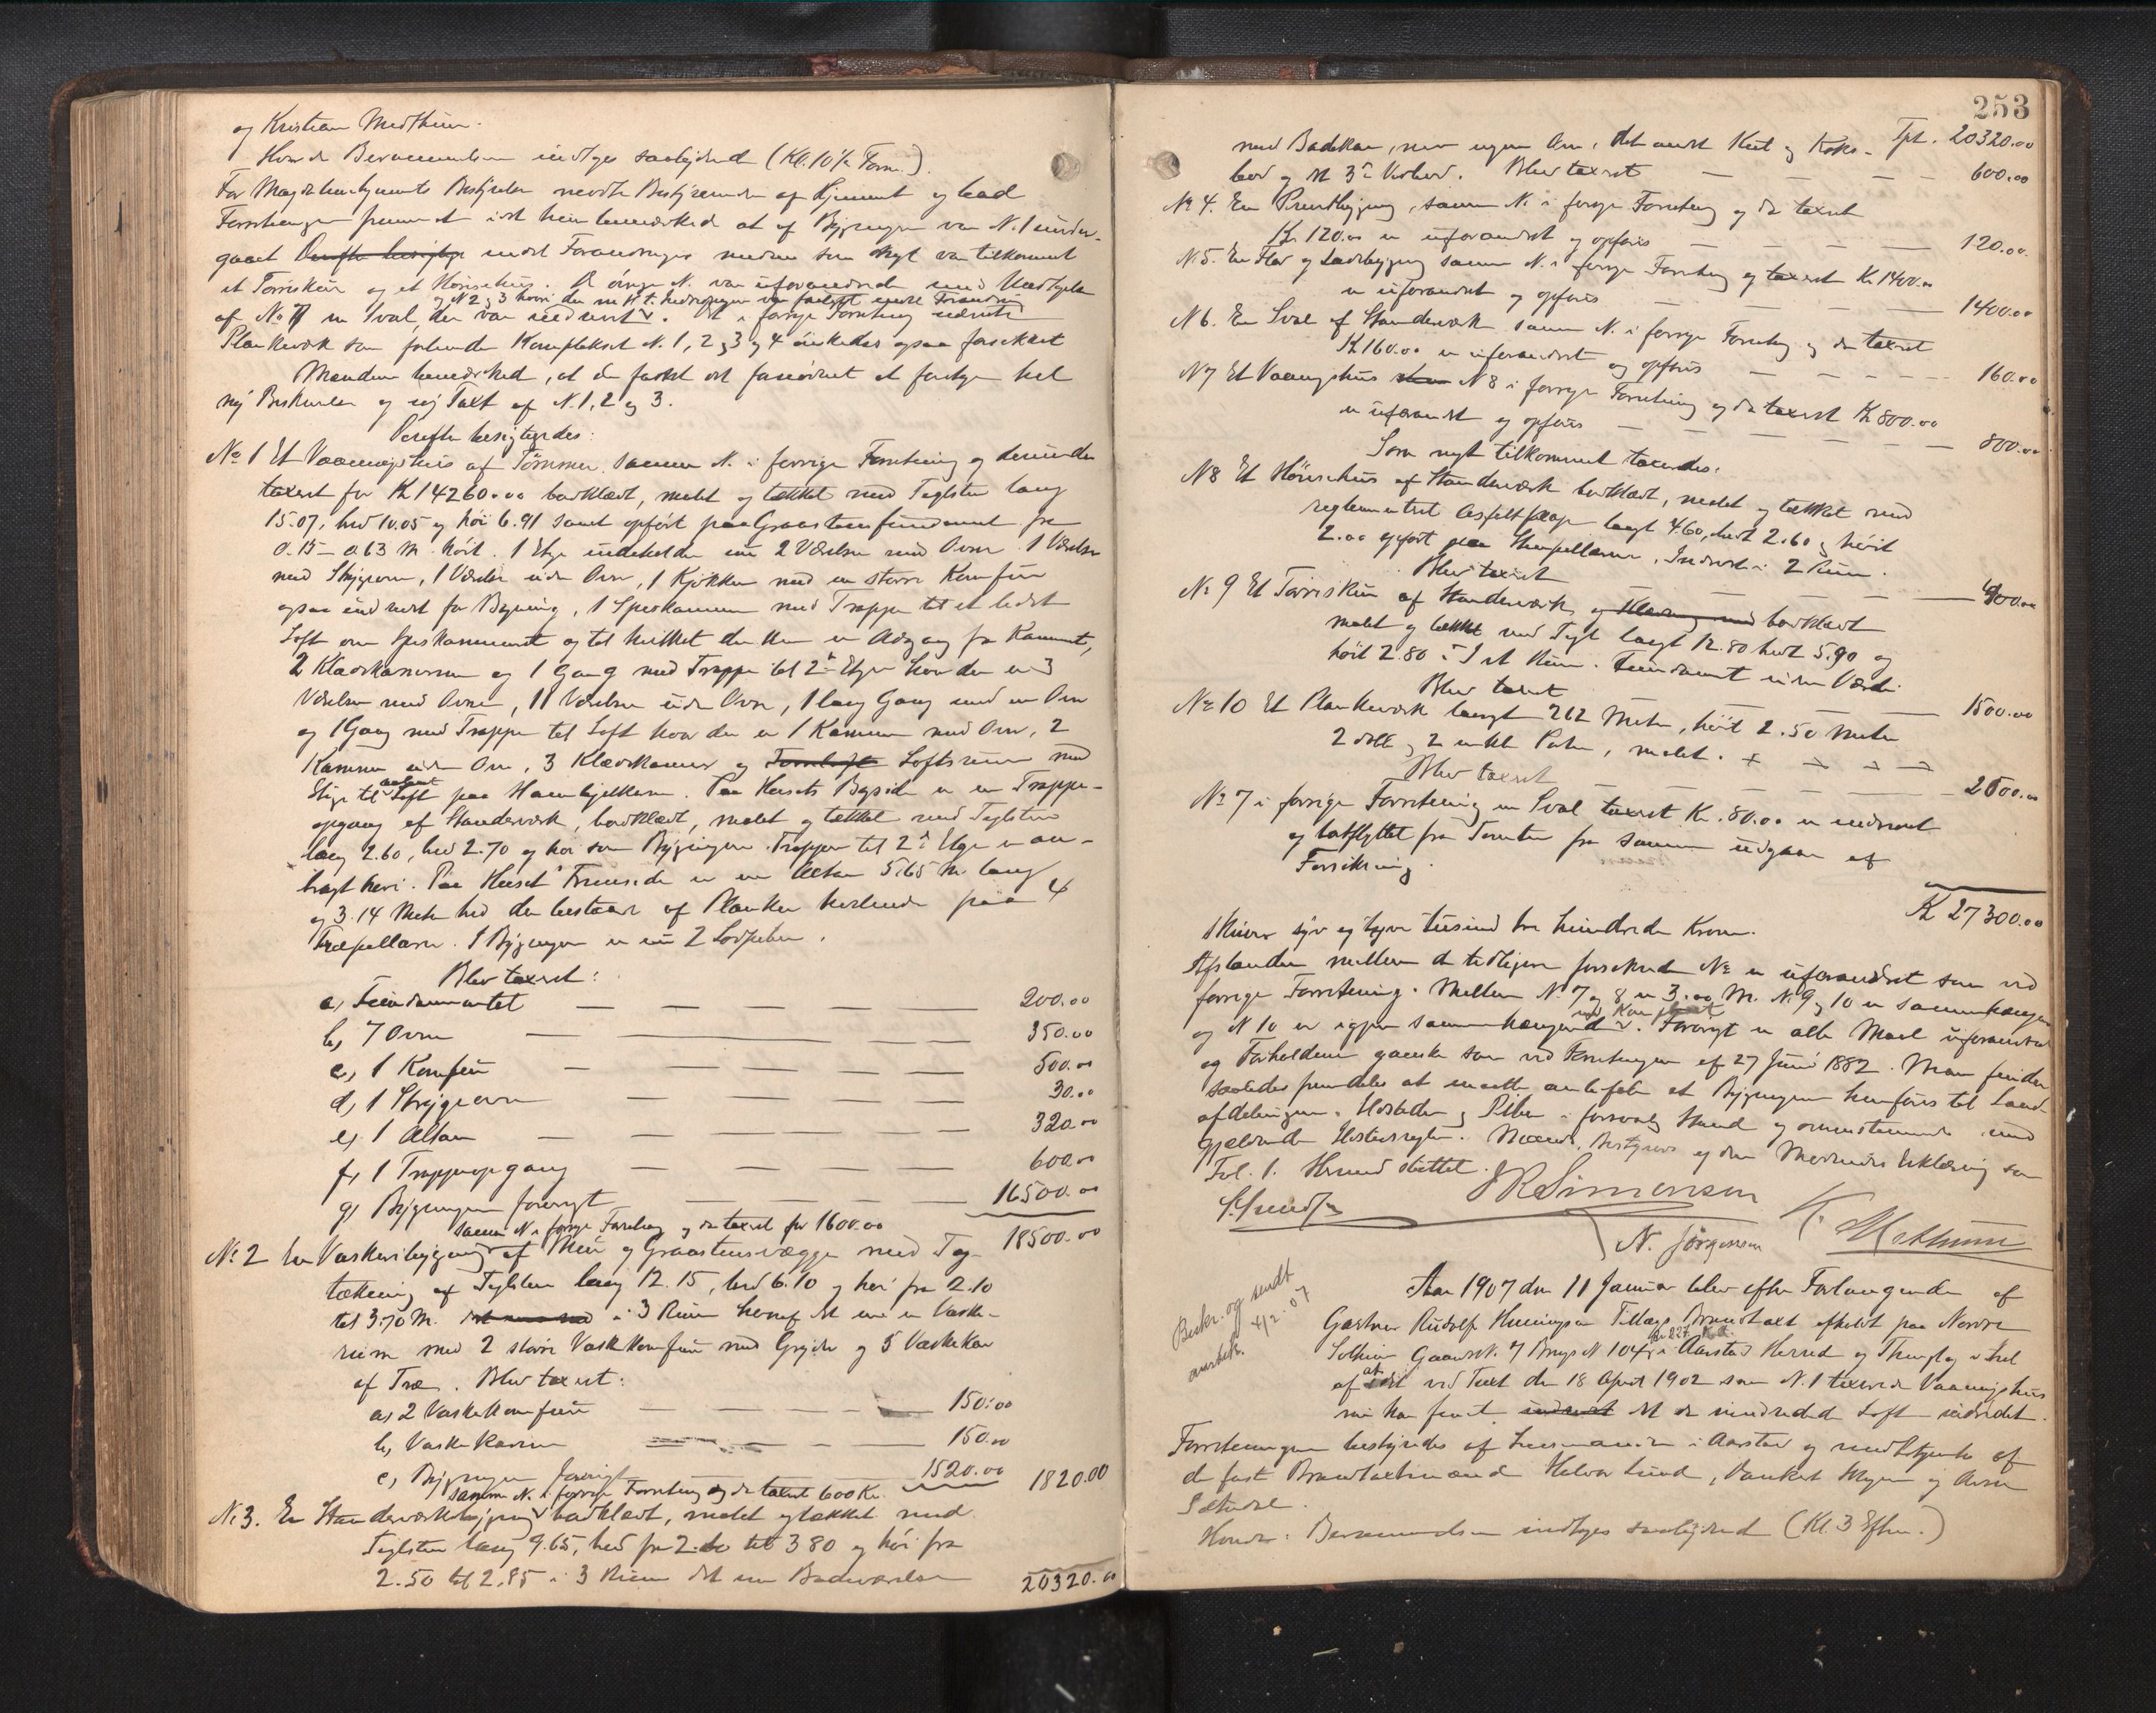 og Kristian Medthun.
Hvorda Berammelsen indtoges saalydende (Kl. 10½ Form.).
For Magdalenehjemmets Bestyrelse mødte Bestyrerinden af Hjemmet og bad
Forretningen fremmet idet hun bemærkede at af Bygningen var N. 1 under-
gaaet Derefter besigtige endel Forandringer medens som Nyt var tilkommet
et Tørreskur og et Hønsehus. De øvrige N. var uforandrede med Undtagelse
og N 2 & 3 hvori der
af No 7 en Sval, der var nedrevet. Det i forrige Forretning nævnte
Plankeværk som forbinder Komplekset N. 1, 2, 3 og 4 ønskedes ogsaa forsikret
Mændene bemærked, at de fandt det fornødent at foretage hel
ny Beskrivelse og ny Taxt af N. 1, 2 og 3.
Derefter besigtigedes:
No 1 Et Vaaningshus af Tømmer samme N. i forrige Forretning og derunder
taxeret for Kr 14260.00 bordklædt, malet og tækket med Teglsten lang
15.07, bred 10.05 og høi 6.91 samt opført paa Graastensfundament fra
0.15 – 0.63 M. høit. 1 Etge indeholder nu 2 Værelser med Ovne 1 Værelse
med Strygeovn, 1 Værelse uden Ovn, 1 Kjøkken med en større Komfur
ogsaa indrettet for Bagning, 1 Spiskammer med Trappe til et lidet
Loft over Spiskammeret og til hvilket der er Adgang fra Kammeret,
2 Klædeskammere og 1 Gang med Trappe til 2den Etge hvor der er 3
Værelser med Ovne, 11 Værelser uden Ovne, 1 lang Gang med en Ovn
og 1 Gang med Trappe til Loft hvor der er 1 Kammer med Ovn, 2
Kammer uden Ovn, 3 Klædeskamre og Tørreloft Loftsrum med
Stige til aabent Loft paa Hanebjelkerne. Paa Husets Bagside er en Trappe-
opgang af Standerværk, bordklædt, malet og tækket med Teglsten
lang 2.60, bred 2.70 og høi som Bygningen. Trappen til 2den Etge er an-
bragt heri. Paa Husets Fremside er en Altan 5.65 M. lang
og 3.14 Meter bred der bestaar af Planker hvilende paa 4
Træpillarer. I Bygningen er nu 2 Lodpiber.
Blev taxeret:
a, Fundamentet — — — — 200.00
b, 7 Ovne — — — — 350.00
c, 1 Komfur — — — — 500.00
d, 1 Strygeovn — — — — 30.00
e, 1 Altan — — — — 320.00
f, 1 Trappeopgang — — — — 600.00
g, Bygningen forøvrigt — — — 16500.00
18500.00
samme N. i forrige Forretning og da taxeret for 1600.00
No 2 En Vaskeribygning af Mur og Graastensvægge med Tag-
tækning af Teglsten lang 12.15, bred 6.10 og høi fra 2.10
til 3.70 M. i 3 Rum hvoraf det ene er Vaske-
rum med 2 større Vaskekomfur med Gryder og 5 Vaskekar
af Træ. Blev taxeret:
a, 2 Vaskekomfure — — — 150.00
b, Vaskekarene — — — 150.00
c, Bygningen forøvrigt 1520.00
1820.00
samme N. i forrige Forretning og da taxeret 600 Kr.
No 3. En Standerværksbygning bordklædt, malet og tækket med
Teglsten lang 9.65, bred fra 2.80 til 3.80 og høi fra
2.50 til 2.85 i 3 Rum det ene Badeværelse
20320.00
253
Tpt. 20320.00
med Badekar, men ingen Ovn, det andet Kul og Koks-
bod og det 3die Vedbod. Blev taxeret — — — 600.00
No 4. En Privetbygning, samme N. i forrige Forretning og da taxeret
Kr. 120.00 er uforandret og opføres — — — — 120.00
N. 5. En Hø og Ladebygning samme N. i forrige Forretning og taxeret Kr 1400.00
er uforandret og opføres — — — 1400.00
N 6. En Sval af Standerværk samme N. i forrige Forretning og da taxeret
Kr 160.00 er uforandret og opføres — — — 160.00
N 7 Et Vaaningshus N 8 i forrige Forretning og da taxeret Kr 800.00
er uforandret og opføres — — — — 800.00
Som nyt tilkommet taxeredes:
N 8 Et Hønsehus af Standerværk bordklædt, malet og tækket med
reglementeret Asfaltpap langt 4.60, bredt 2.60 og høit
2.00 opført paa Stenpillarer. Indredet i 2 Rum.
Blev taxeret — — — 400.00
No 9 Et Tørreskur af Standerværk, bordklædt
malet og tækket med Tegl langt 12.80 bredt 5.90 og
høit 2.80 i I et Rum. Fundament uden Værdi.
Blev taxeret — — — 1500.00
No 10 Et Plankeværk langt 212 Meter, høit 2.50 Meter
2 dobb. og 2 enkle Porte, malet.
Blev taxeret — — — 2000.00
No 7 i forrige Forretning en Sval taxeret Kr. 80.00 er nedrevet
og bortflyttet fra Tomten for samme udgaar af
Forsikring.
Kr 27300.00
skriver syv og tyve tusind tre hundrede Kroner.
Afstanden mellem de tidligere forsikrede No er uforandret som ved
forrige Forretning. Mellem N. 7 og 8 er 3.00 M. N. 9 og 10 er sammenhængende
og N 10 er igjen sammenhængende med Komplekset. Forøvrigt er alle Maal uforandret
og Forholdene ganske som ved Forretningen af 27 Juni 1882. Man finder
saaledes fremdeles at maatte anbefale at Bygningen henføres til Land-
afdelingen. Ildsteder og Piber i forsvarlig Stand og overensstemmende med
gjældende Ildstedsregler. Mænds, Bestyrers og den Mødendes Erklæring som
Fol. 1. Hermed sluttet.
J R Simonsen
N. Jørgensen K. Medthun
Beskr. og sendt
4/2. 07
Aar 1907 den 11 Januar blev efter Forlangende af
Gartner Rudolf Henningsen Tillægs Brandtaxt afholdt paa Nordre
Solheim Gaardsn. 7 Brugs N 104 i Aarstad Herred og Thinglag i Anl
af at det ved Taxt den 18 April 1902 som N. 1 taxerede Vaaningshus
nu har faaet indredet det da uindredede Loft indredet.
Forretningen bestyredes af Lensmanden i Aarstad og medbetjentes af
de faste Brandtaxtmænd Halvor Lund, og Arne
Sætredal.
Hvorda: Berammelsen indtoges saalydende (Kl. 3 Efterm.)